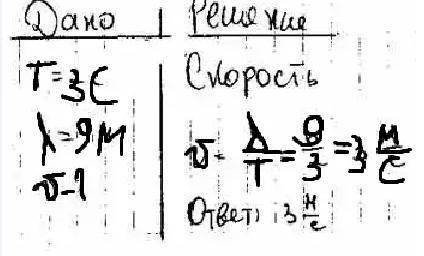 Дано | Решение
T=3С
λ=9м
v-?
Скорость
v = λ/T = 9/3 = 3 м/с
Ответ: 3 м/с